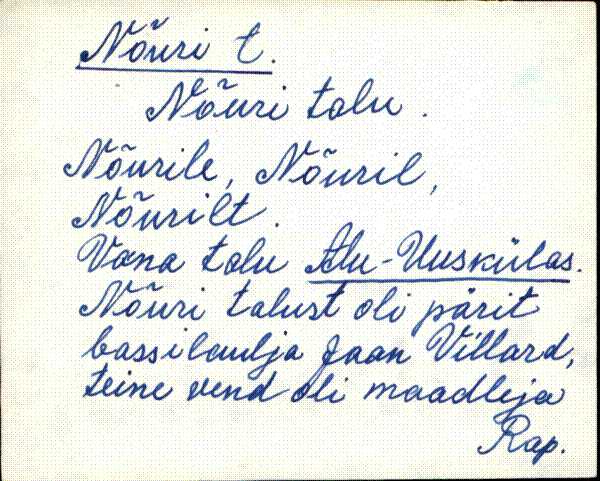 Nõuri t.
Nõuri talu.
Nõurile, Nõuril,
Nõurilt.
Vana talu Alu-Uuskülas.
Nõuri talust oli pärit
bassilaulja Jaan Villard,
teine vend oli maadleja
Rap.